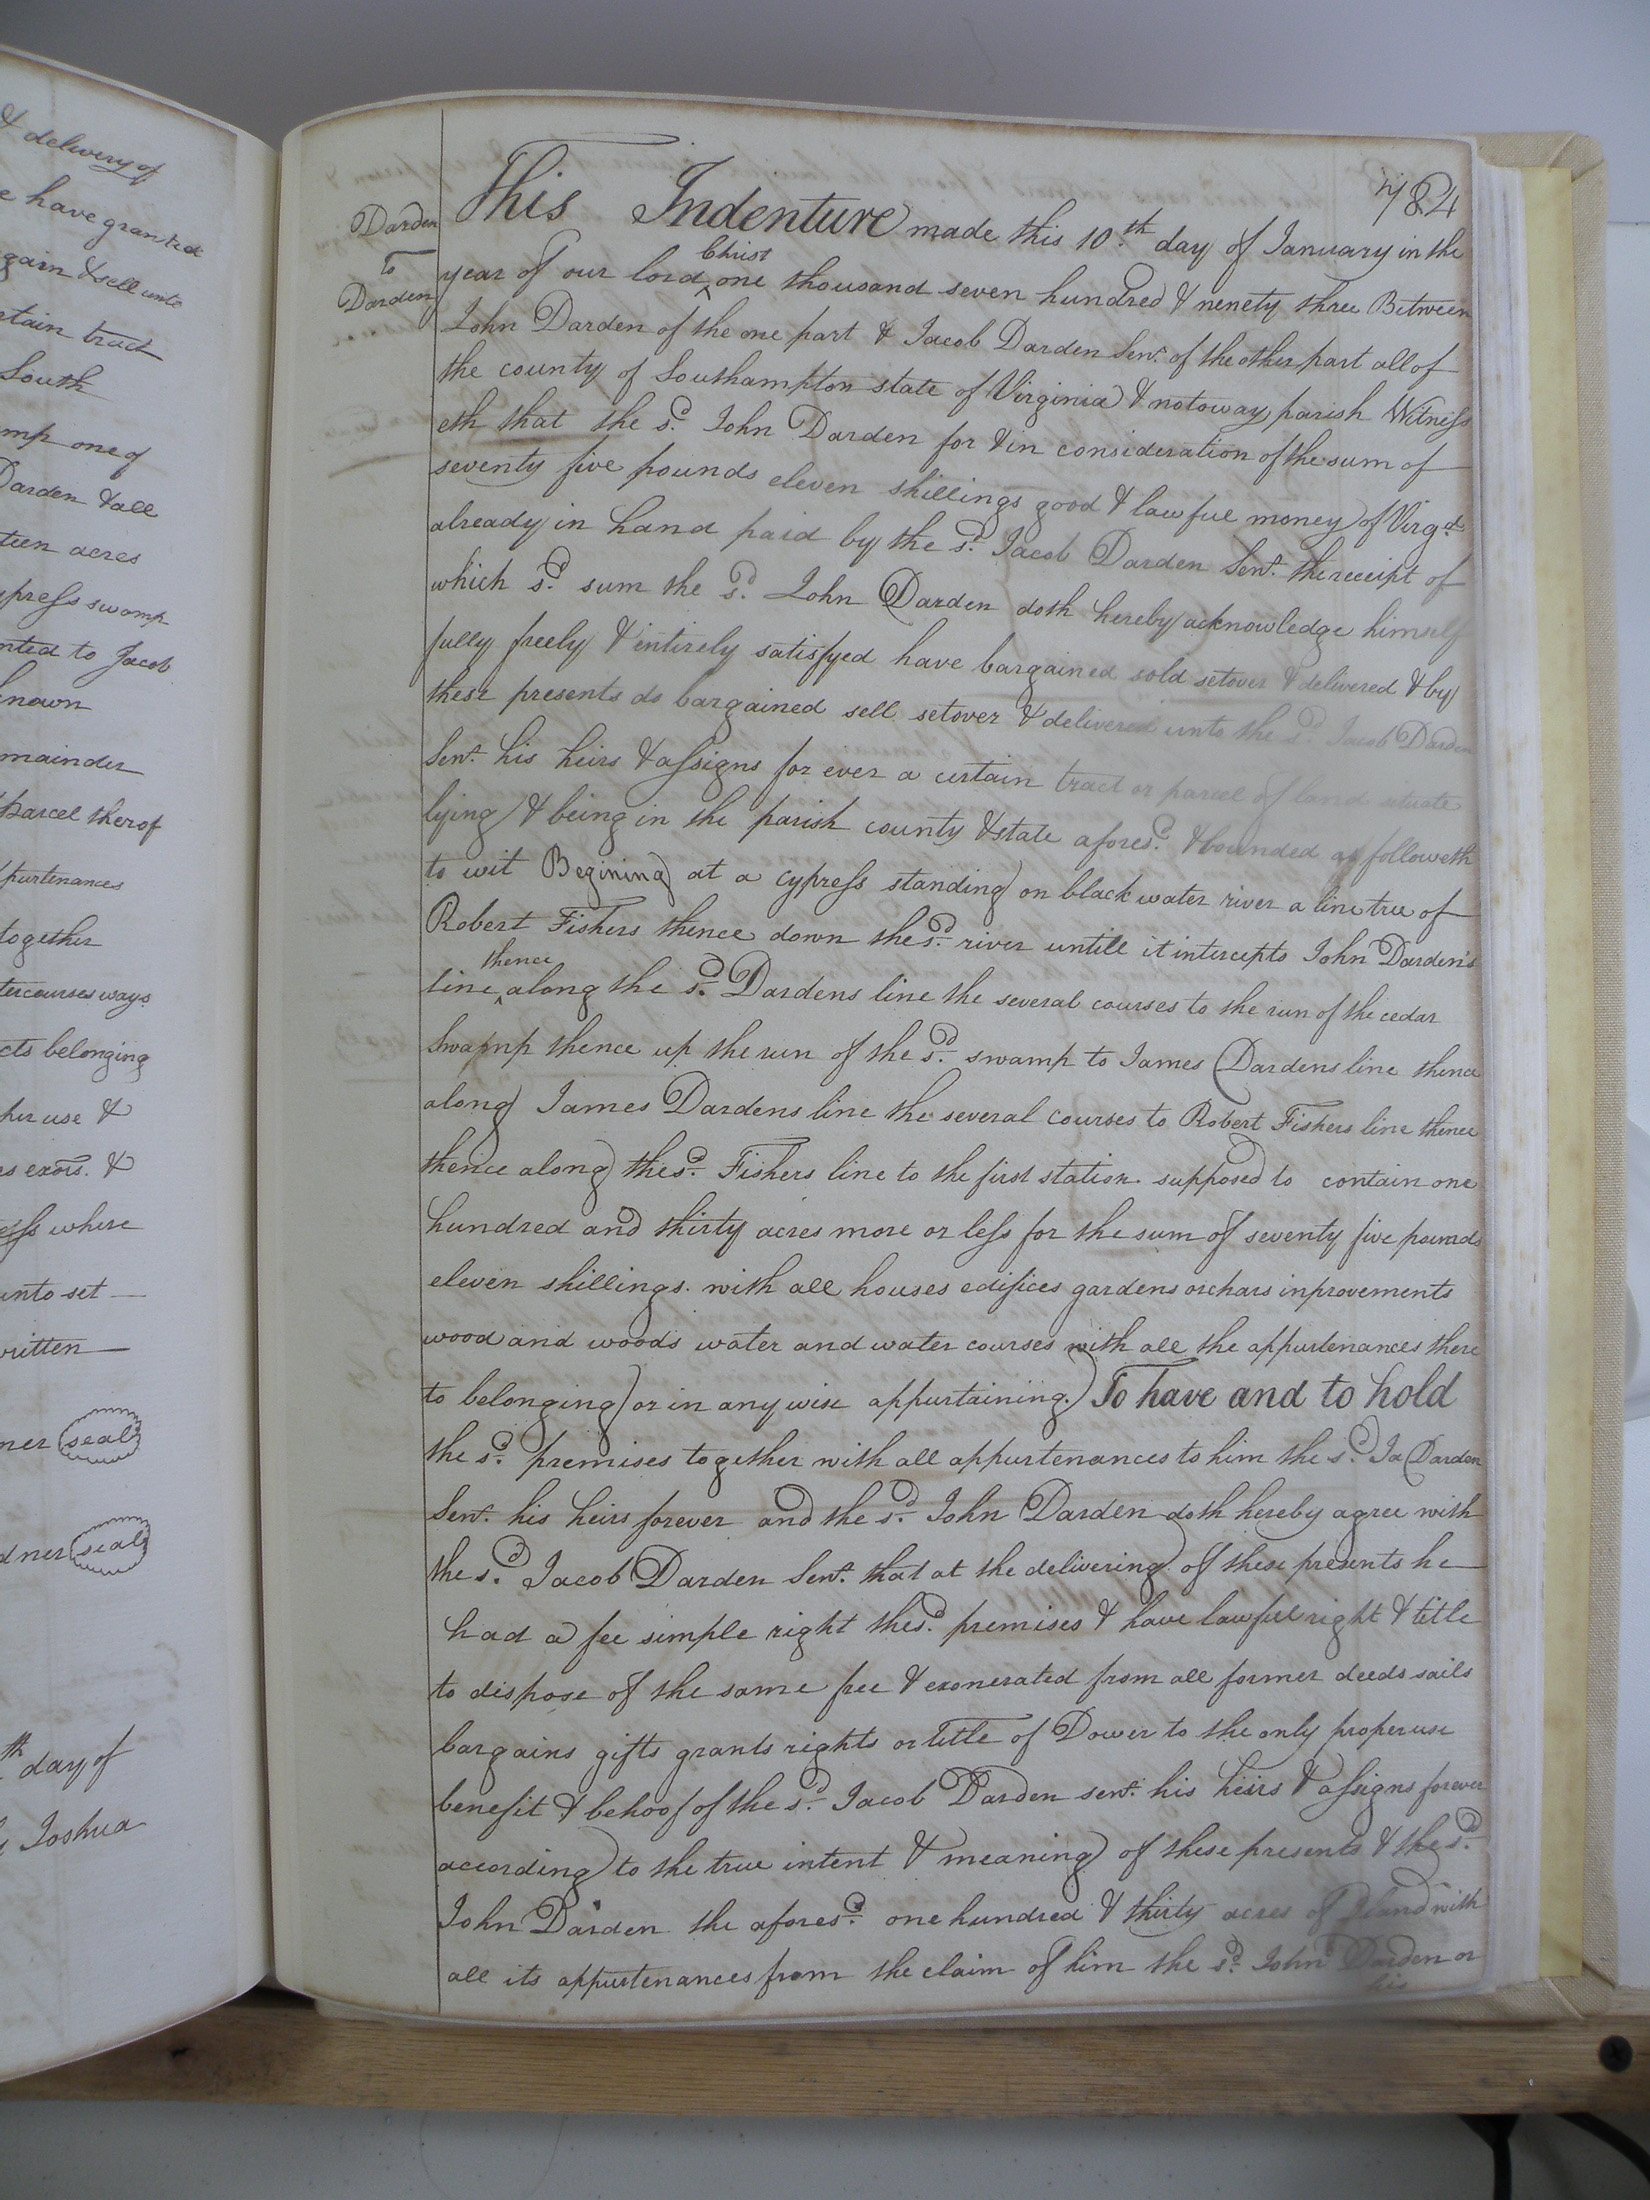 & delivery of
e have granted
gain & sell unto
rtain tract
South
mp one of
Darden & all
teen acres
press swomp
nted to Jacob
known
mainder
parcel therof
purtenances
together
tercourses ways
cts belonging
her use &
es exors. &
ess where
unto set
written
ner seal
dner seal
th day of
Joshua
784
Darden
to
Darden
This Indenture made this 10.th day of January in the
year of our lord Christ one thousand seven hundred & nenety three Between
John Darden of the one part & Jacob Darden Senr. of the other part all of
the county of Southampton state of Virginia & notoway parish Witness
eth that the sd. John Darden for & in consideration of the sum of
seventy five pounds eleven shillings good & lawful money of Virga.
already in hand paid by the sd. Jacob Darden Senr. the receipt of
which sd. sum the sd. John Darden doth hereby acknowledge himself
fully freely & entirely satisfyed have bargained sold setover & delivered & by
these presents do bargained sell setover & delivered unto the sd. Jacob Darden
Senr. his heirs & assigns for ever a certain tract or parcel of land situate
lying & being in the parish county & state aforesd. & bounded as followeth
to wit Begining at a cypress standing on black water river a line tree of
Robert Fishers thence down the sd. river untill it intercepts John Darden's
line thence along the sd. Dardens line the several courses to the run of the cedar
Swapnp thence up the run of the sd. swamp to James Dardens line thence
along James Dardens line the several courses to Robert Fishers line thence
thence along the sd. Fishers line to the first station supposed to contain one
hundred and thirty acres more or less for the sum of seventy five pounds
eleven shillings. with all houses edifices gardens orchars inprovements
wood and woods water and water courses with all the appurtenances there
to belonging or in any wise appurtaining. To have and to hold
the sd. premises together with all appurtenances to him the sd. Ja Darden
Senr. his heirs forever and the sd. John Darden doth hereby agree with
the sd. Jacob Darden Senr. that at the delivering of these presents he
had a fee simple right the sd. premises & have lawful right & title
to dispose of the same free & exonerated from all former deeds sails
bargains gifts grants rights or title of Dower to the only proper use
benefit & behoof of the sd. Jacob Darden senr. his heirs & assigns forever
according to the true intent & meaning of these presents & the sd.
John Darden the aforesd. one hundred & thirty acres of land with
all its appurtenances from the claim of him the sd. John Darden or
his